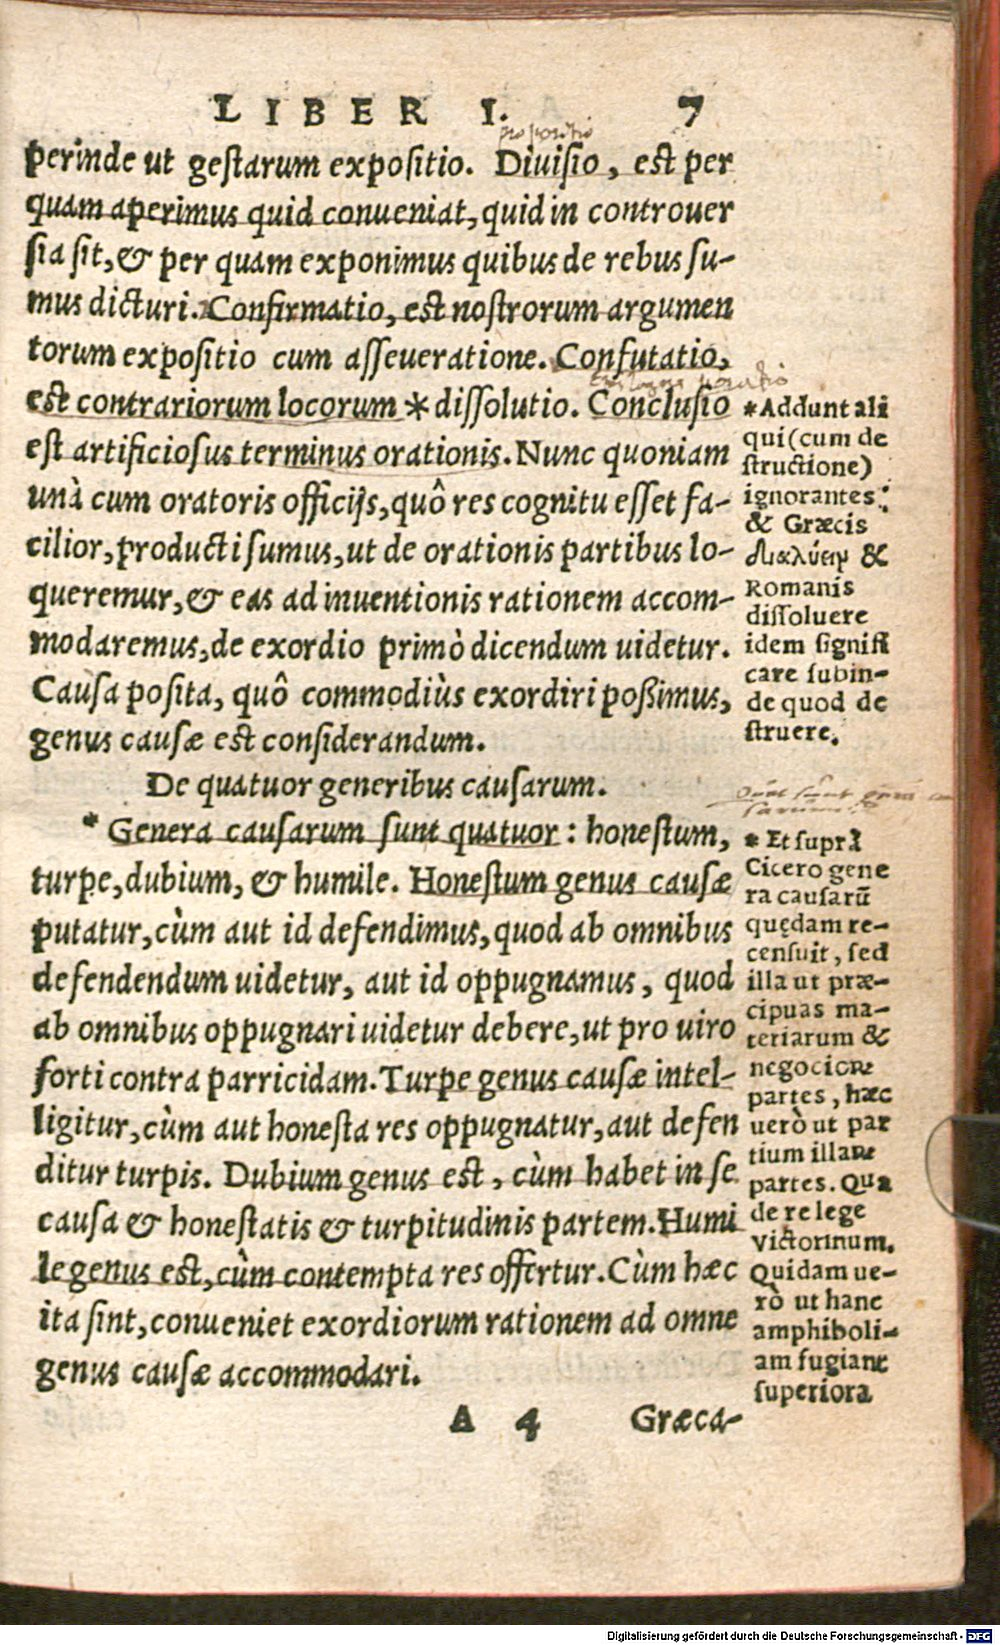 LIBER I. 7
perinde ut gestarum expositio. Diuisio, est per
quam aperimus quid conueniat, quid in controuer
sia sit, & per quam exponimus quibus de rebus su-
mus dicturi. Confirmatio, est nostrorum argumen
torum expositio cum asseueratione. Confutatio,
est contrariorum locorum * dissolutio. Conclusio
est artificiosus terminus orationis. Nunc quoniam
unà cum oratoris officijs, quô res cognitu esset fa-
cilior, producti sumus, ut de orationis partibus lo-
queremur, & eas ad inuentionis rationem accom-
modaremus, de exordio primò dicendum uidetur.
Causa posita, quô commodiùs exordiri poßimus,
genus causæ est considerandum.
De quatuor generibus causarum.
* Genera causarum sunt quatuor: honestum,
turpe, dubium, & humile. Honestum genus causæ
putatur, cùm aut id defendimus, quod ab omnibus
defendendum uidetur, aut id oppugnamus, quod
ab omnibus oppugnari uidetur debere, ut pro uiro
forti contra parricidam. Turpe genus causæ intel-
ligitur, cùm aut honesta res oppugnatur, aut defen
ditur turpis. Dubium genus est, cùm habet in se
causa & honestatis & turpitudinis partem. Humi
le genus est, cùm contempta res offertur. Cùm hæc
ita sint, conueniet exordiorum rationem ad omne
genus causæ accommodari.
A 4 Græca-
*Addunt ali
qui (cum de
structione)
ignorantes:
& Græcis
διαλύειν &
Romanis
dissoluere
idem signifi
care subin-
de quod de
struere.
* Et suprà
Cicero gene
ra causarũ
quędam re-
censuit, sed
illa ut præ-
cipuas ma-
teriarum &
negocioꝝ
partes, hæc
uerò ut par
tium illaꝝ
partes. Qua
de re lege
Victorinum.
Quidam ue-
rò ut hanc
amphiboli-
am fugiant
superiora
Digitalisierung gefördert durch die Deutsche Forschungsgemeinschaft - DFG